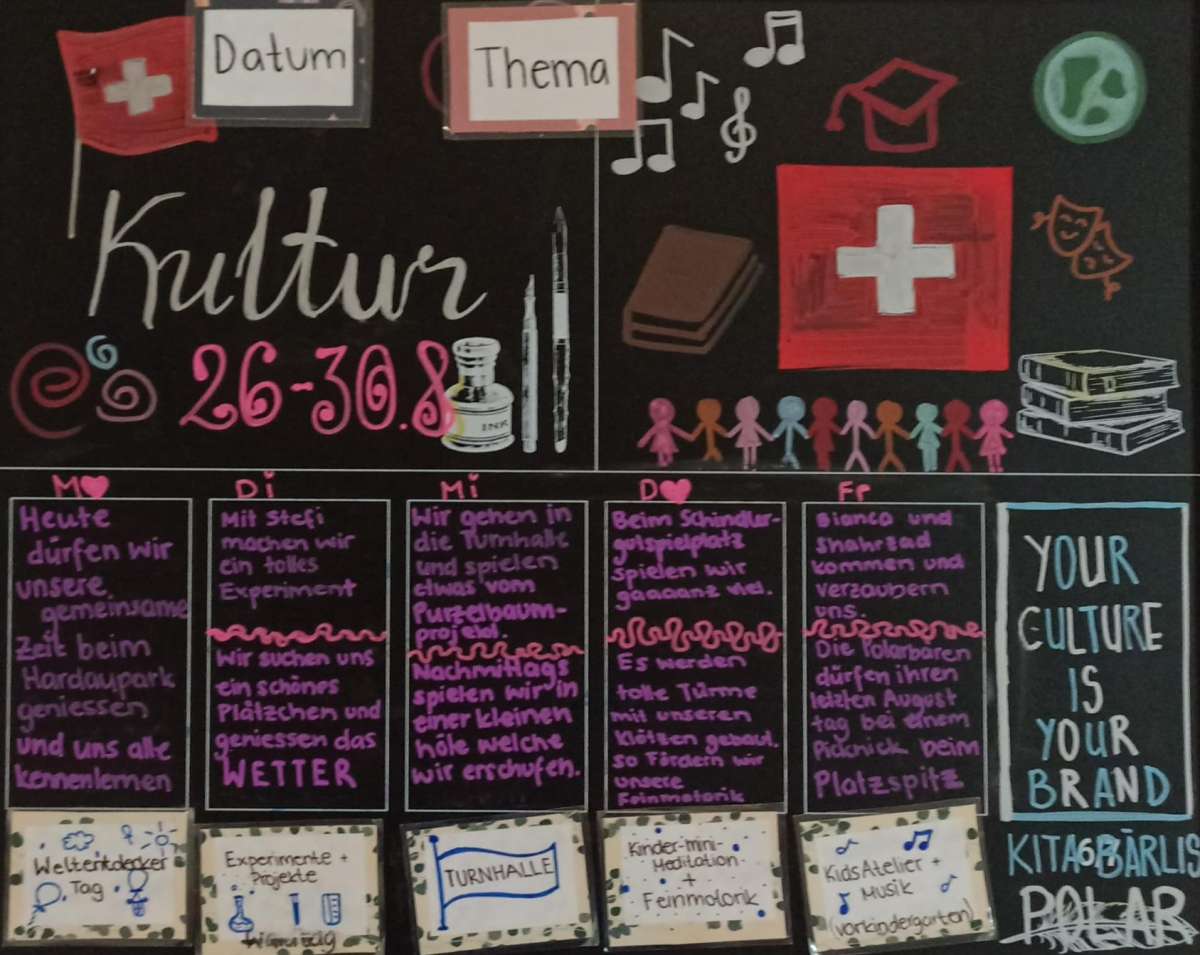 Datum
Thema
Kultur
26-30.8
INK
Mo
Heute
dürfen wir
unsere
gemeinsame
Zeit beim
Hardaupark
geniessen
und uns alle
kennenlernen
Di
Mit Stefi
machen wir
ein tolles
Experiment
Wir suchen uns
ein schönes
Plätzchen und
geniessen das
WETTER
Mi
Wir gehen in
die Turnhalle
und spielen
etwas vom
Purzelbaum-
projekt.
Nachmittags
spielen wir in
einer kleinen
höle welche
wir erschufen.
Do
Beim Schindler-
gutspielplatz
spielen wir
gaaaanz viel.
Es werden
tolle Türme
mit unseren
Klötzen gebaut.
so Fördern wir
unsere
Feinmotorik
Fr
Bianca und
Shahrzad
kommen und
verzaubern
uns.
Die Polarbären
dürfen ihren
letzten August
tag bei einem
Picknick beim
Platzspitz
YOUR
CULTURE
IS
YOUR
BRAND
Weltentdecker
Tag
Experimente +
Projekte
TURNHALLE
Kinder-mini-
Meditation
+
Feinmotorik
KidsAtelier +
Musik
(vorkindergarten)
KITA BÄRLIS
POLAR